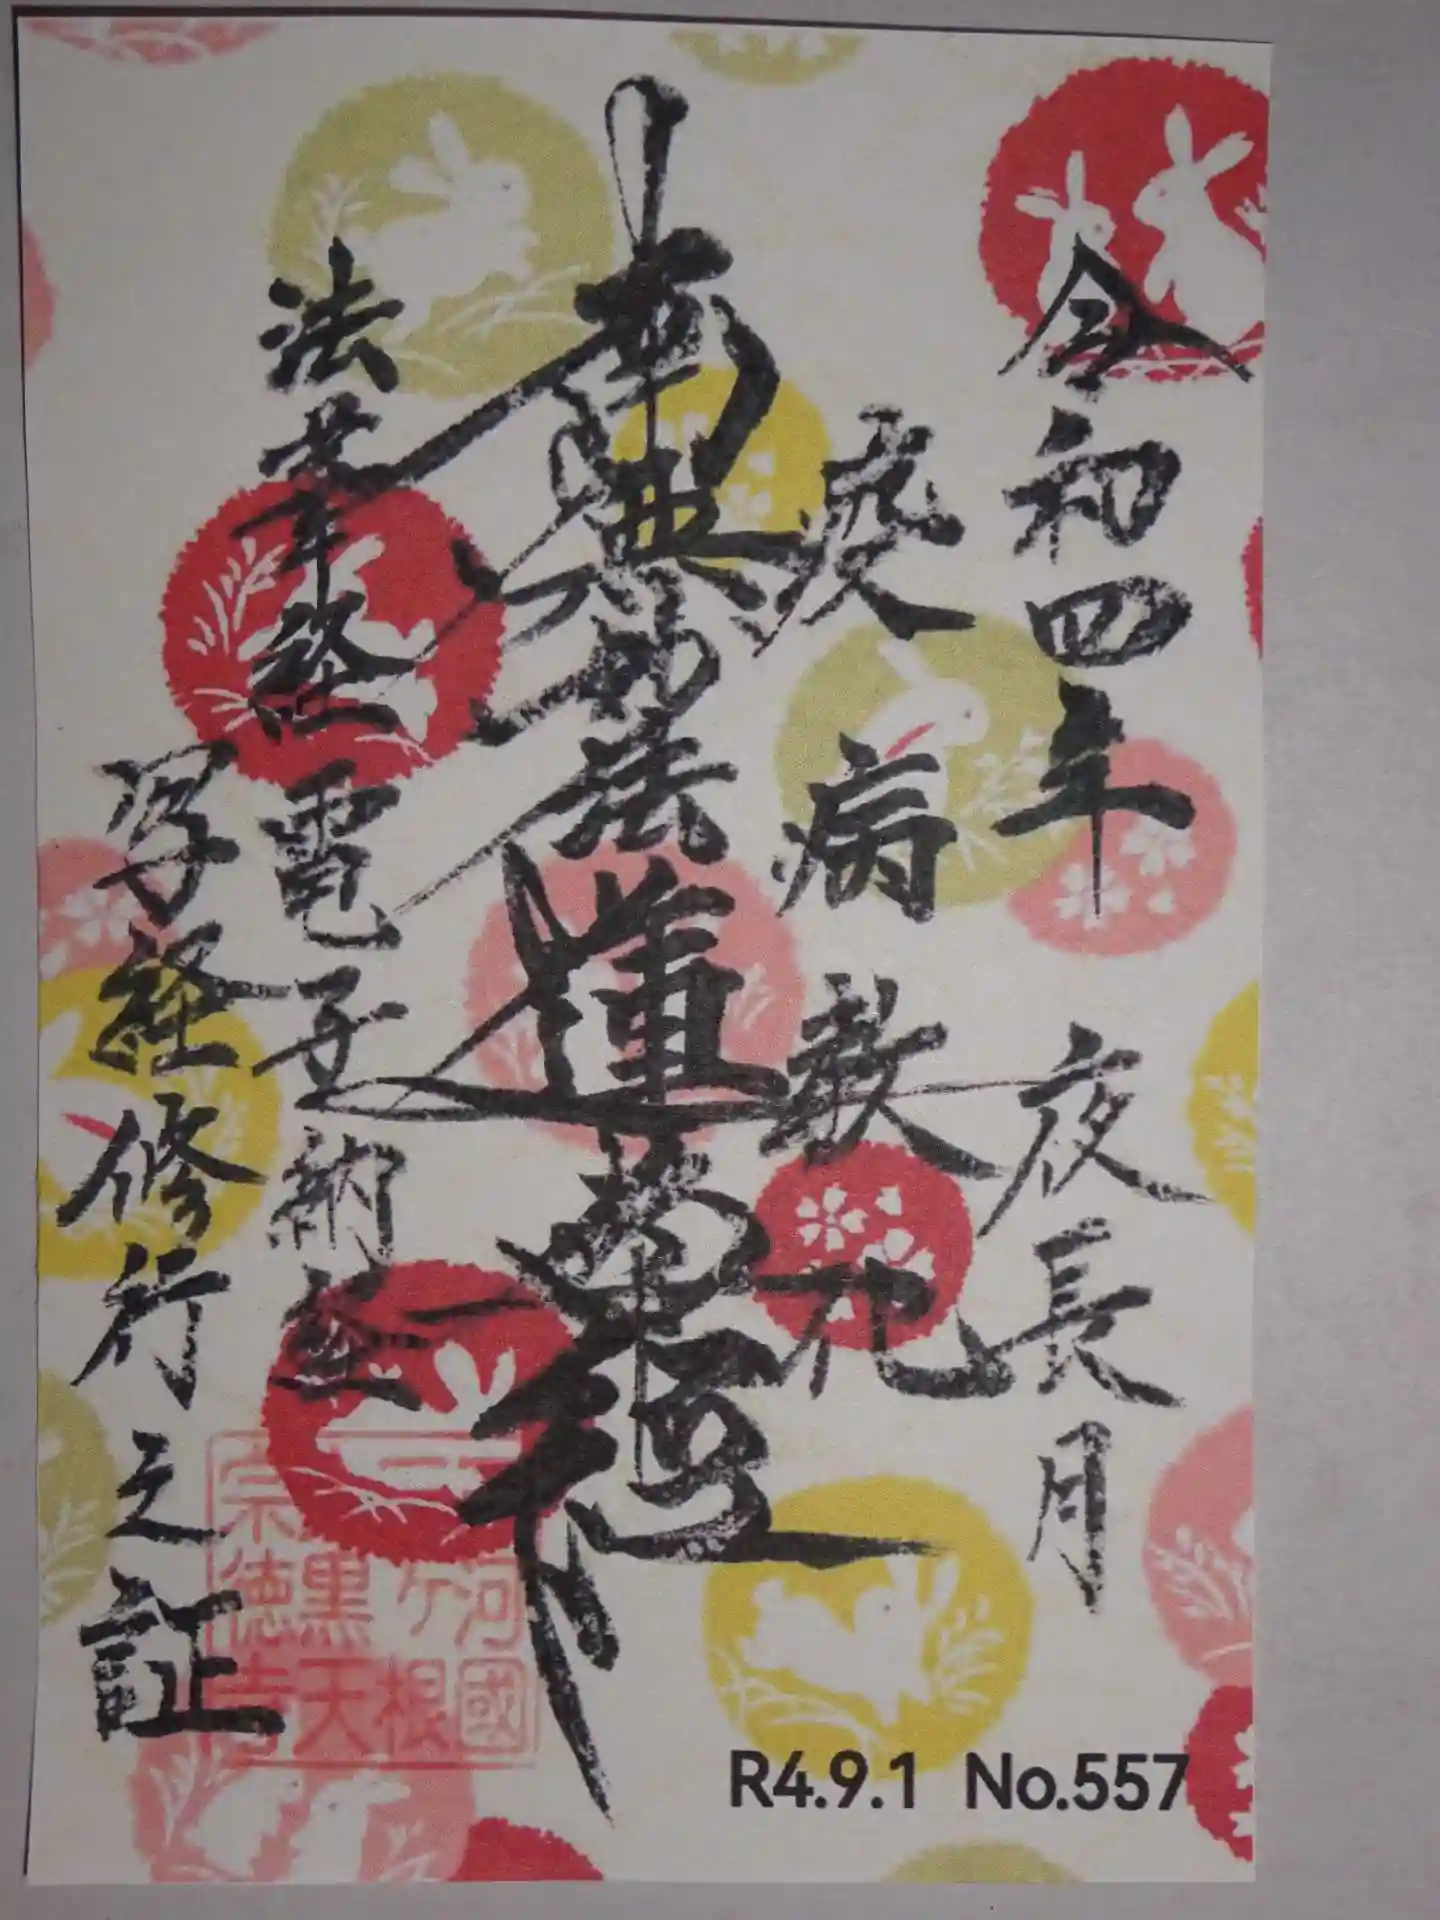 令和四年 夜長月
疫病
南無妙法蓮華経
法華経 電子納経
写経修行之証
河國
ヶ根
黒天
宗徳寺
R4.9.1 No.557